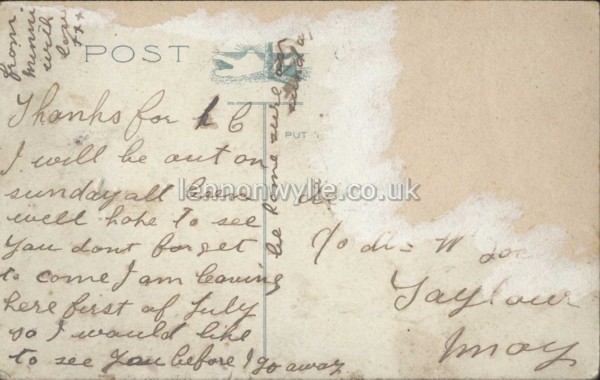 from
Minni
with
love
xxx
POST
Thanks for P C
I will be out on
sunday all been
well hope to see
you dont forget
to come I am leaving
here first of July
so I would like
to see you before I go away
be home sure on
sunday
PUT
lennonwylie.co.uk
c/o Mr W
Taylour
Moy